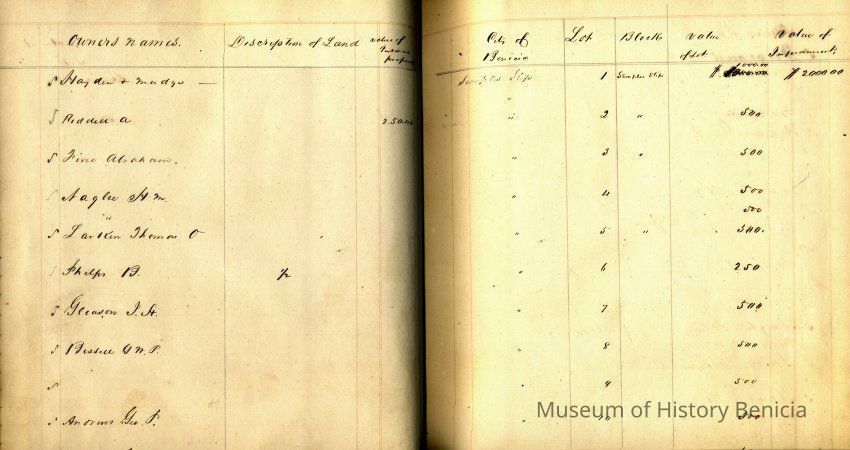 Owners Names. Description of Land value of personal property City of Benicia Lot Block value of lot Value of Improvements
S Hayden + Mudge — Semples Slip 1 Semples Slip $ 1000.00 $ 2000.00
"
S Riddell A 2500 " 2 " 500
S Fine Abraham. " 3 " 500
S Naglee H. M. " 4 500
" 500
S Larkin Thomas O " 5 " 500.
S Phelps B. 1/2 " 6 250
S Gleason J. H. " 7 500
S Bissell G W. P. " 8 500
S " 9 500
S Andrews Geo. P. " 10 500
Museum of History Benicia